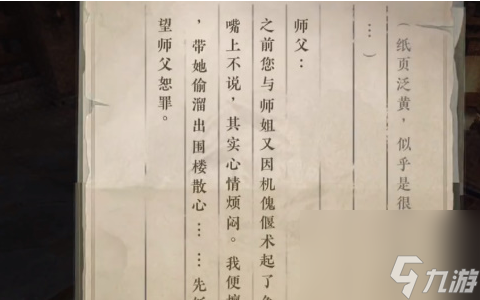 （纸页泛黄，似乎是很
…）
师父：
之前您与师姐又因机傀偃术起了
嘴上不说，其实心情烦闷。我便
，带她偷溜出围楼散心……先
望师父恕罪。
九游